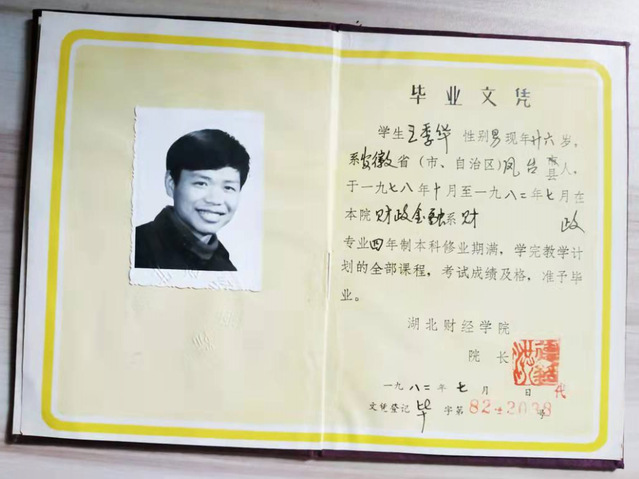 毕业文凭
学生王季华 性别男现年廿六岁，
系安徽省（市、自治区）凤台县人，
于一九七八年十月至一九八二年七月在
本院财政金融系财政
专业四年制本科修业期满，学完教学计
划的全部课程，考试成绩及格，准予毕
业。
湖北财经学院
院长
一九八二年七月 日
代
文凭登记毕字第82-2038号